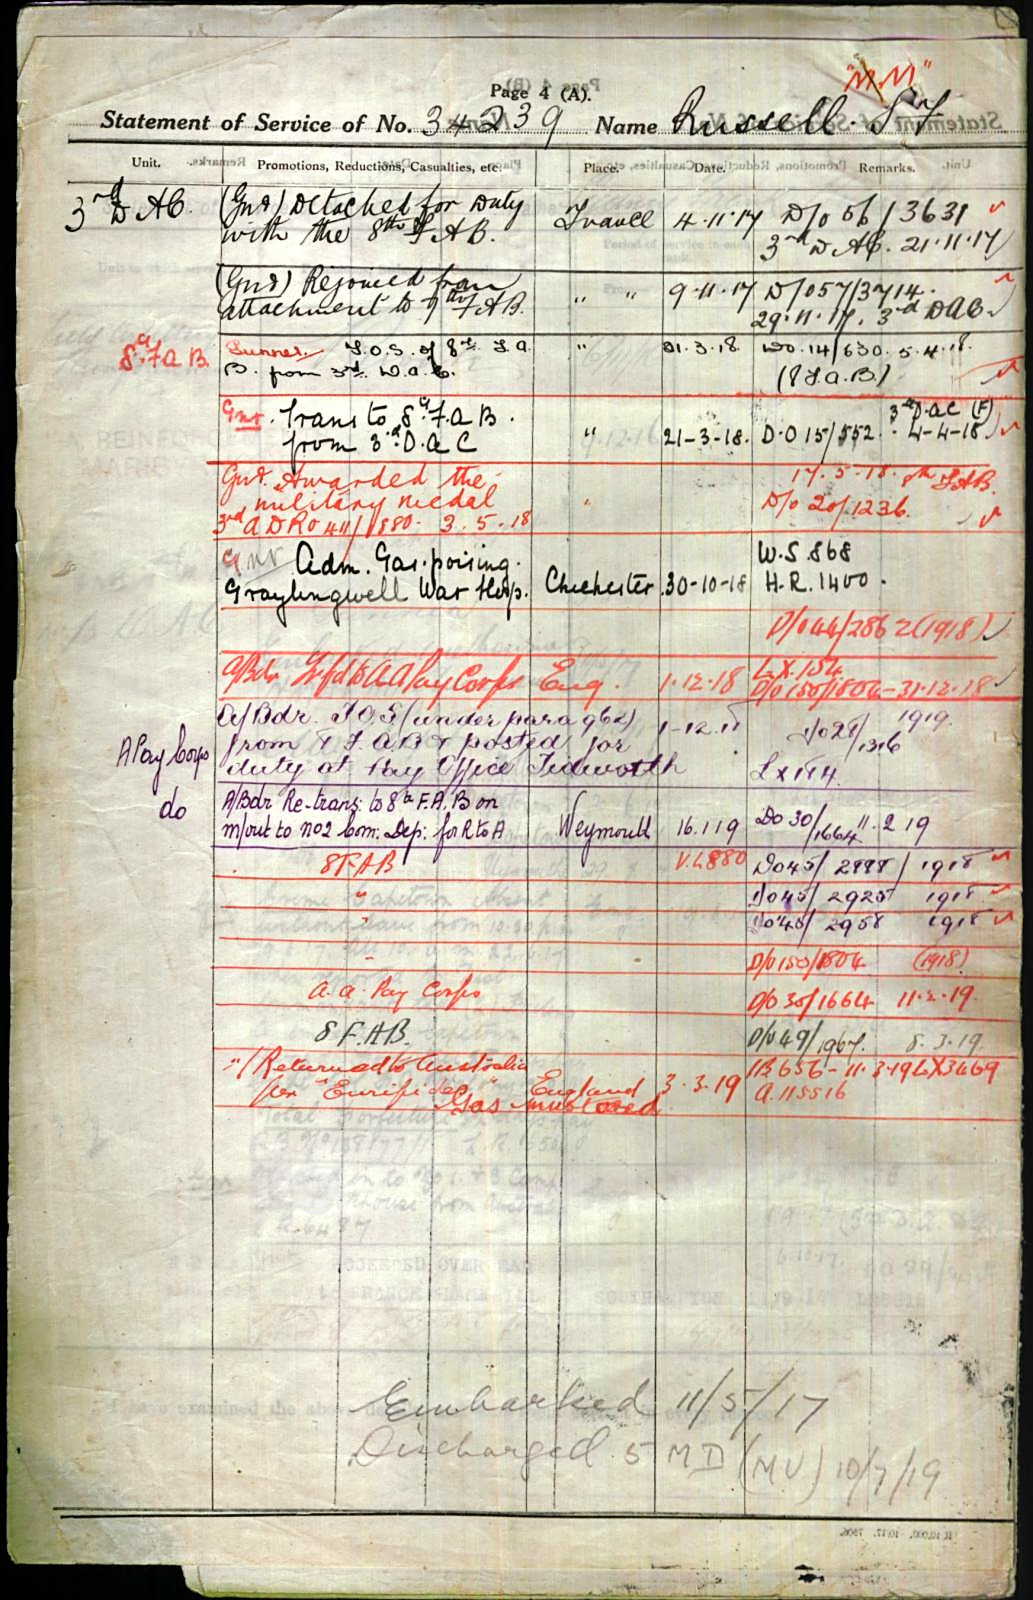 "M.M"
Page 4 (A).
Statement of Service of No. 34239 Name Russell S F
Unit. Promotions, Reductions, Casualties, etc. Place. Date. Remarks.
3rd D AC. (Gnr) Detached for Duty France 4.11.17 D/o 56/3631
with the 8th F A B. 3rd D AC. 21.11.17
(Gnr) Rejoined from " " 9.11.17 D/O57/3714.
attachment to 7th F A B. 29.11.17. 3rd DAC.
8th F A B. Gunner. T.O.S. of 8th F.A. " 21.3.18 DO.14/630. 5.4.18.
B. from 3rd D.A.C. (8 F.A.B.)
Gnr. Trans to 8th F.A B. 3rd D.A.C (F)
from 3rd D.A.C " 21-3-18. D.O 15/552. 4-4-18
Gnr. Awarded the 17.5.18. 8th F.A.B.
military medal " D/o 20/1236.
3rd A D R O 411/1880. 3.5.18
Gnr Adm. Gas. poising. W.S. 868
Graylingwell War Hosp. Chichester 30-10-18 H.R. 1400.
D/o 44/2862 (1918)
A/Bdr Trsfd to A A Pay Corps Eng. 1.12.18 LX.154
D/o 150/1804-31.12.18
A/Bdr. T.O.S. (under para 962) 1919.
A Pay Corps from 8 F.A.B & posted for 1-12.18 D/o 28/1316
duty at Pay Office Tidworth LX154.
do A/Bdr Re-trans: to 8th F.A.B on
m/out to No 2 Com: Dep: for R to A Weymouth 16.1.19 Do 30/1664 11.2 19
8 F AB V.L880 Do45/ 2888/ 1918
" Do45/ 2925 1918
" Do45/ 2958 1918
" D/o 150/1804 (1918)
A.A. Pay Corps D/o 30/1664 11.2.19.
8 F.A.B. D/o 49/1967. 8.3.19.
"/Returned to Australia 11B656-11.3.19 LX3469
per "Euripides" England 3.3.19 A.115516
Gas mustard
Embarked 11/5/17
Discharged 5 MD (MU) 10/7/19